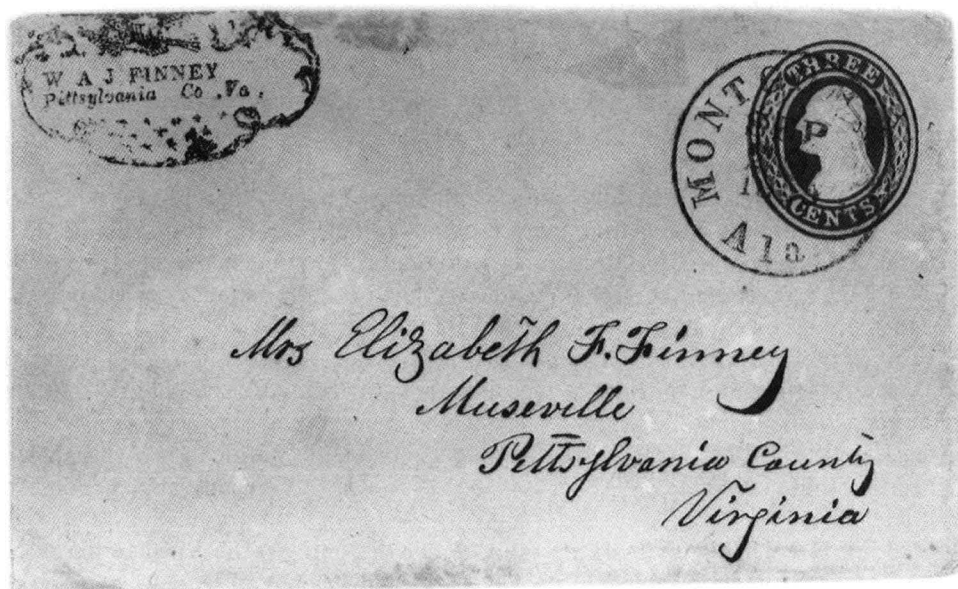 W A J FINNEY
Pittsylvania Co ,Va.
THREE
CENTS
MONT
P
Ala
Mrs Elizabeth F. Finney
Museville
Pittsylvania County
Virginia